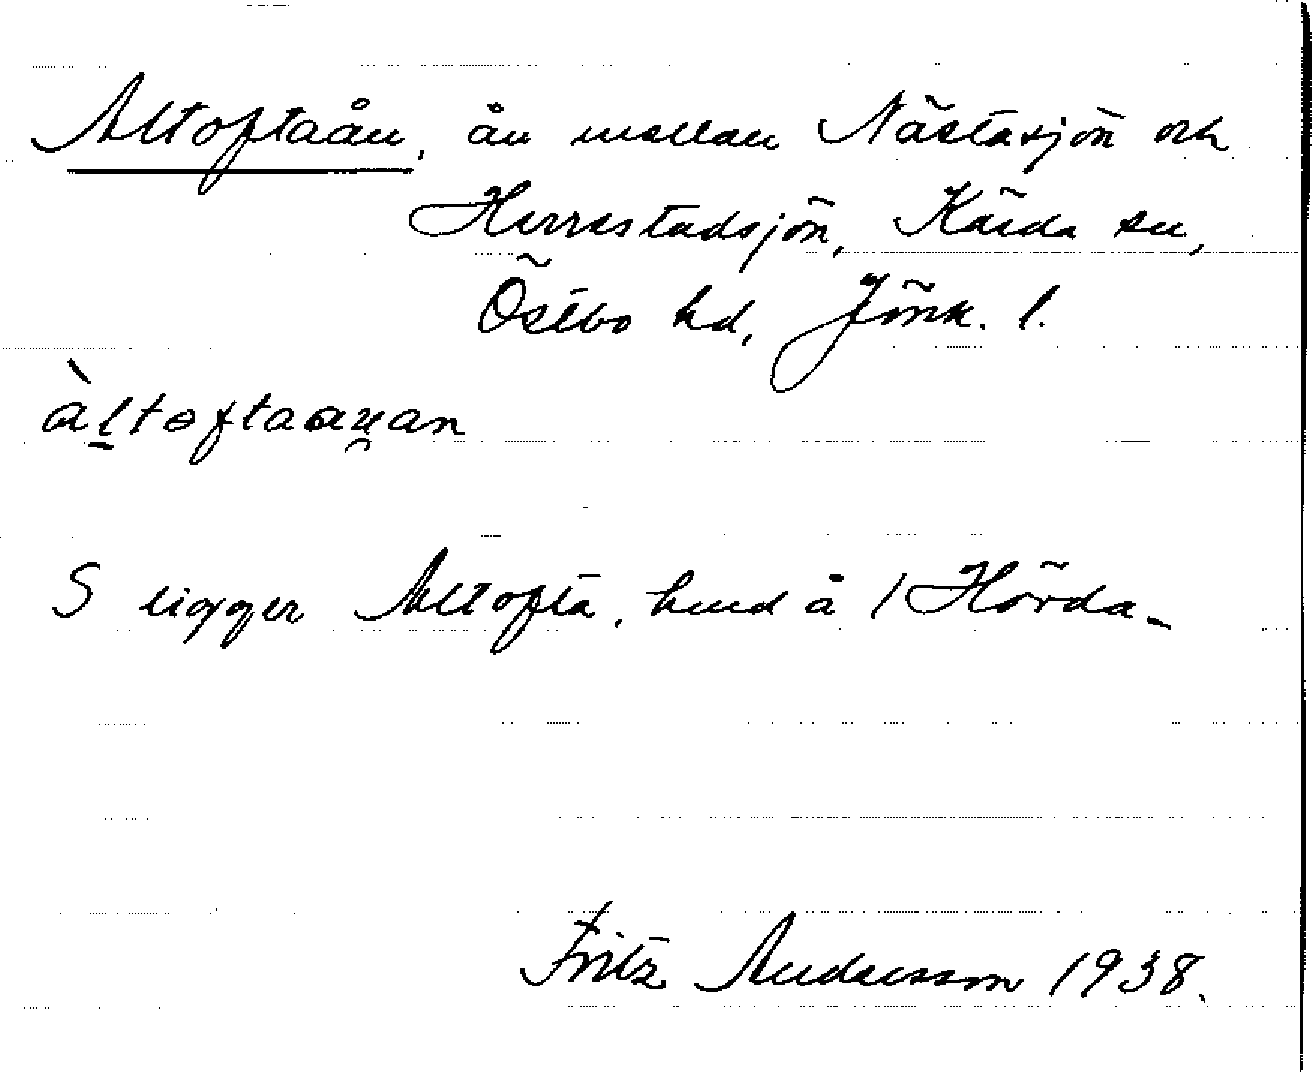 Altoftaån, ån mellan Nästasjön och
Herrestadsjön, Kärda sn,
Östbo hd, Jönk. l.
àltoftaaṷan
S ligger Altofta, hmd å 1 Hörda.
Fritz Andersson 1938.